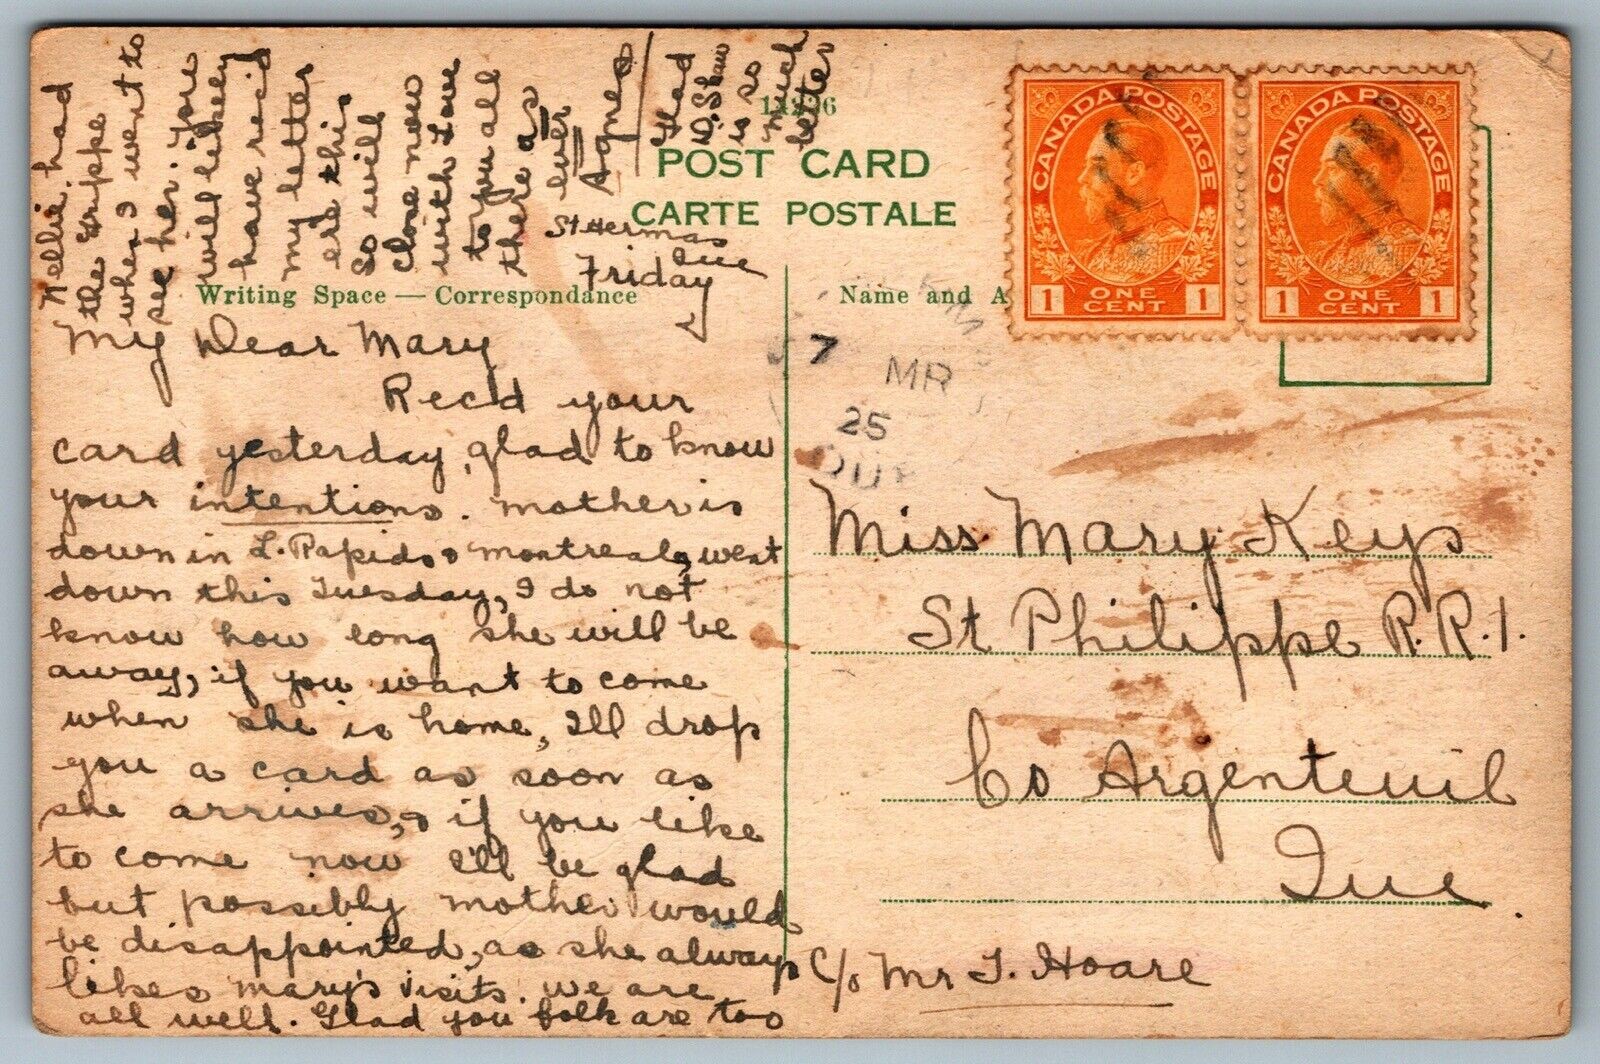 St Hermas
Que
Friday
My Dear Mary
Rec'd your
card yesterday, glad to know
your intentions. Mother is
down in L. Rapids & Montreal, went
down this Tuesday, I do not
know how long she will be
away, if you want to come
when she is home, I'll drop
you a card as soon as
she arrives, & if you like
to come now I'll be glad
but possibly mother would
be disappointed, as she always
likes Mary's visits. We are
all well. Glad you folk are too
Nellie had
the Grippe
when I went to
see her. You
will likely
have rec'd
my letter
ere this
So will
close now
with Love
to you all
there as
ever
Agnes
Glad
D. Shaw
is so
much
better
POST CARD
CARTE POSTALE
Writing Space — Correspondance
Name and A
CANADA POSTAGE
1 ONE CENT 1
CANADA POSTAGE
1 ONE CENT 1
7
MR
25
QUE
Miss Mary Keys
St Philippe R.R.1.
Co Argenteuil
Que.
C/o Mr T. Hoare